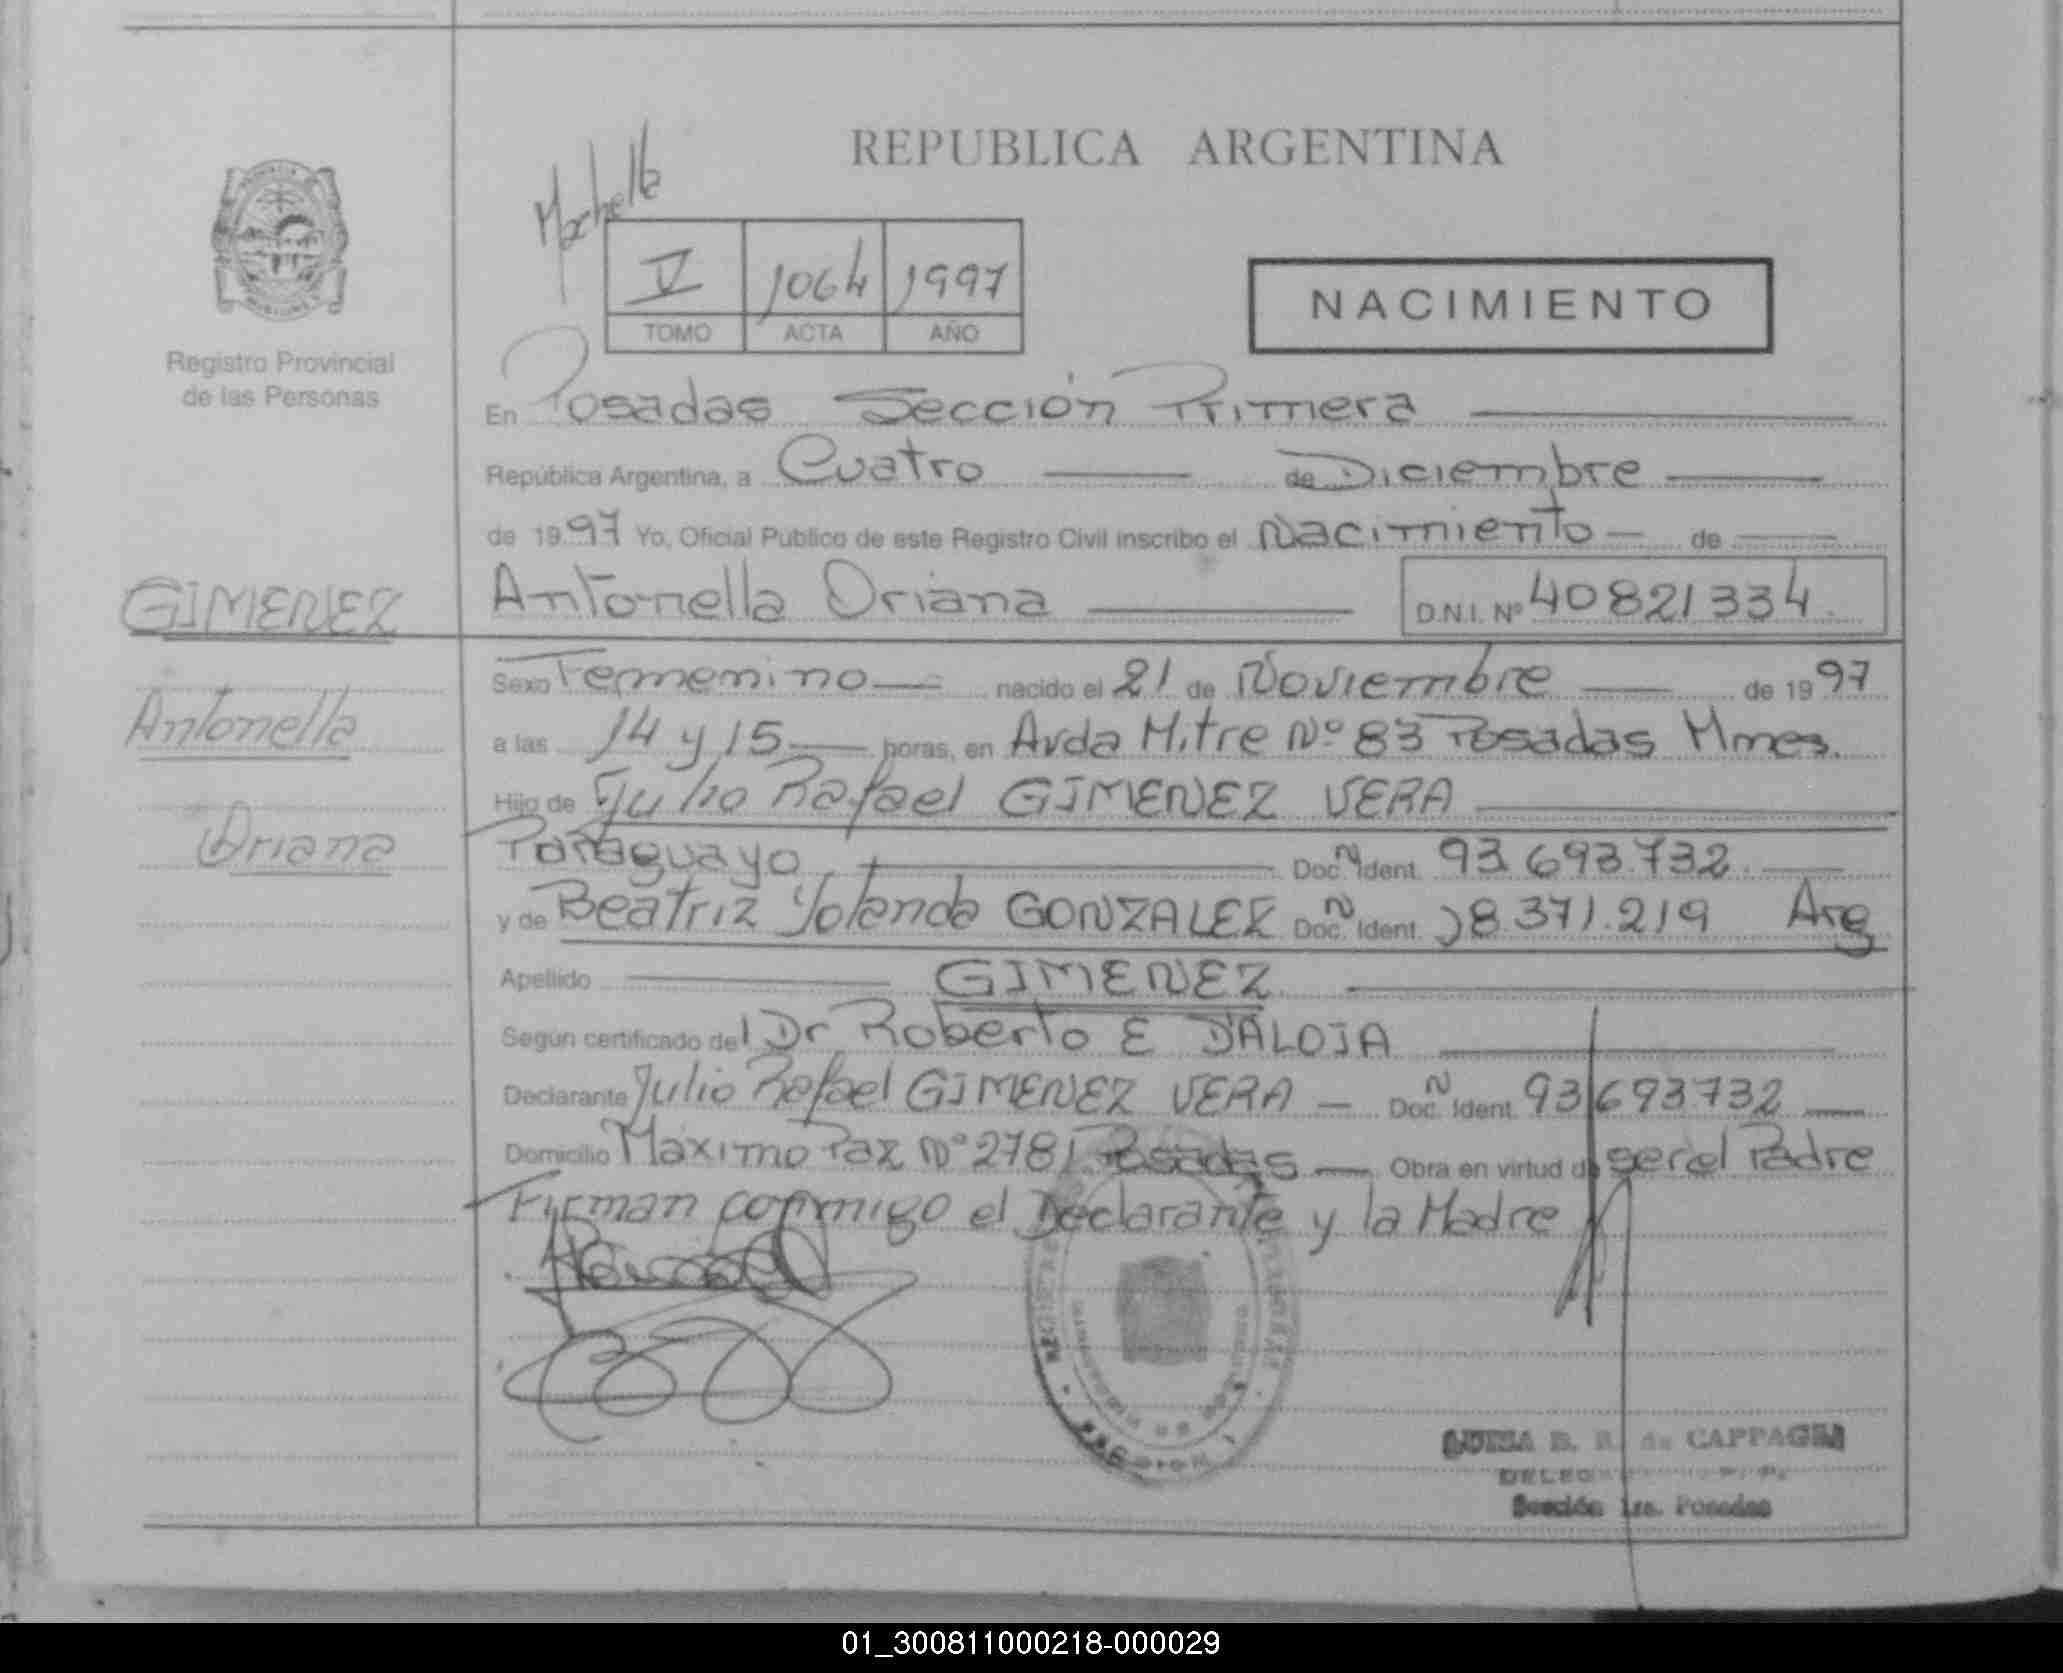 REPUBLICA ARGENTINA
V 1064 1997
TOMO ACTA AÑO
NACIMIENTO
Registro Provincial
de las Personas
En Posadas Sección Primera
República Argentina, a Cuatro de Diciembre
de 1997 Yo, Oficial Público de este Registro Civil inscribo el Nacimiento de
GIMENEZ
Antonella Oriana D.N.I. Nº 40821334
Sexo Femenino nacido el 21 de Noviembre de 1997
Antonella
a las 14 y 15 horas, en Avda Mitre Nº 83 Posadas Mnes.
Hijo de Julio Rafael GIMENEZ VERA
Oriana
Paraguayo Doc. Ident. 93.693.732
y de Beatriz Yolanda GONZALEZ Doc. Ident. 18.371.219 Arg
Apellido GIMENEZ
Según certificado del Dr Roberto E D'ALOJA
Declarante Julio Rafael GIMENEZ VERA Doc. Ident. 93693732
Domicilio Máximo Paz Nº 2781 Posadas Obra en virtud de ser el Padre
Firman conmigo el Declarante y la Madre
LUISA B. R. de CAPPAGLI
Sección 1ra. Posadas
01_300811000218-000029